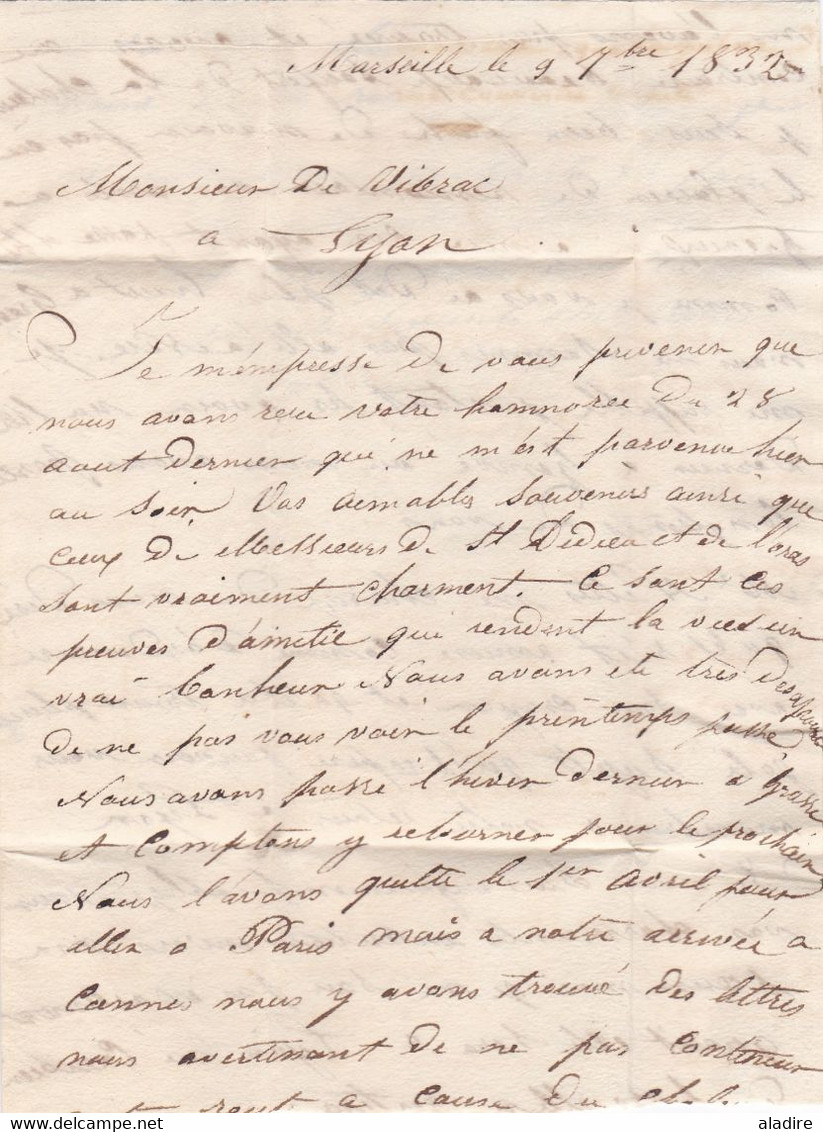 Marseille le 9 7bre 1832
Monsieur De Vibrac
a Lyon
Je m'émpresse de vous prevenir que
nous avons recu votre honnoree du 28
aout dernier qui ne m'est parvenue hier
au soir. Vos aimables souvenirs ainsi que
ceux de Messieurs de St Didier et de
sont vraiment charment. Ce sont ces
preuves d'amitié qui rendent la vie un
vrai bonheur Nous avons ete très
de ne pas vous voir le printemps passé
Nous avons passé l'hiver dernier a Grasse
et comptons y retourner pour le prochain
Nous l'avons quitte le 1er avril pour
aller a Paris mais a notre arrivée a
Cannes nous y avons trouvé des lettres
nous avertissant de ne pas continuer
a cause du
aladire